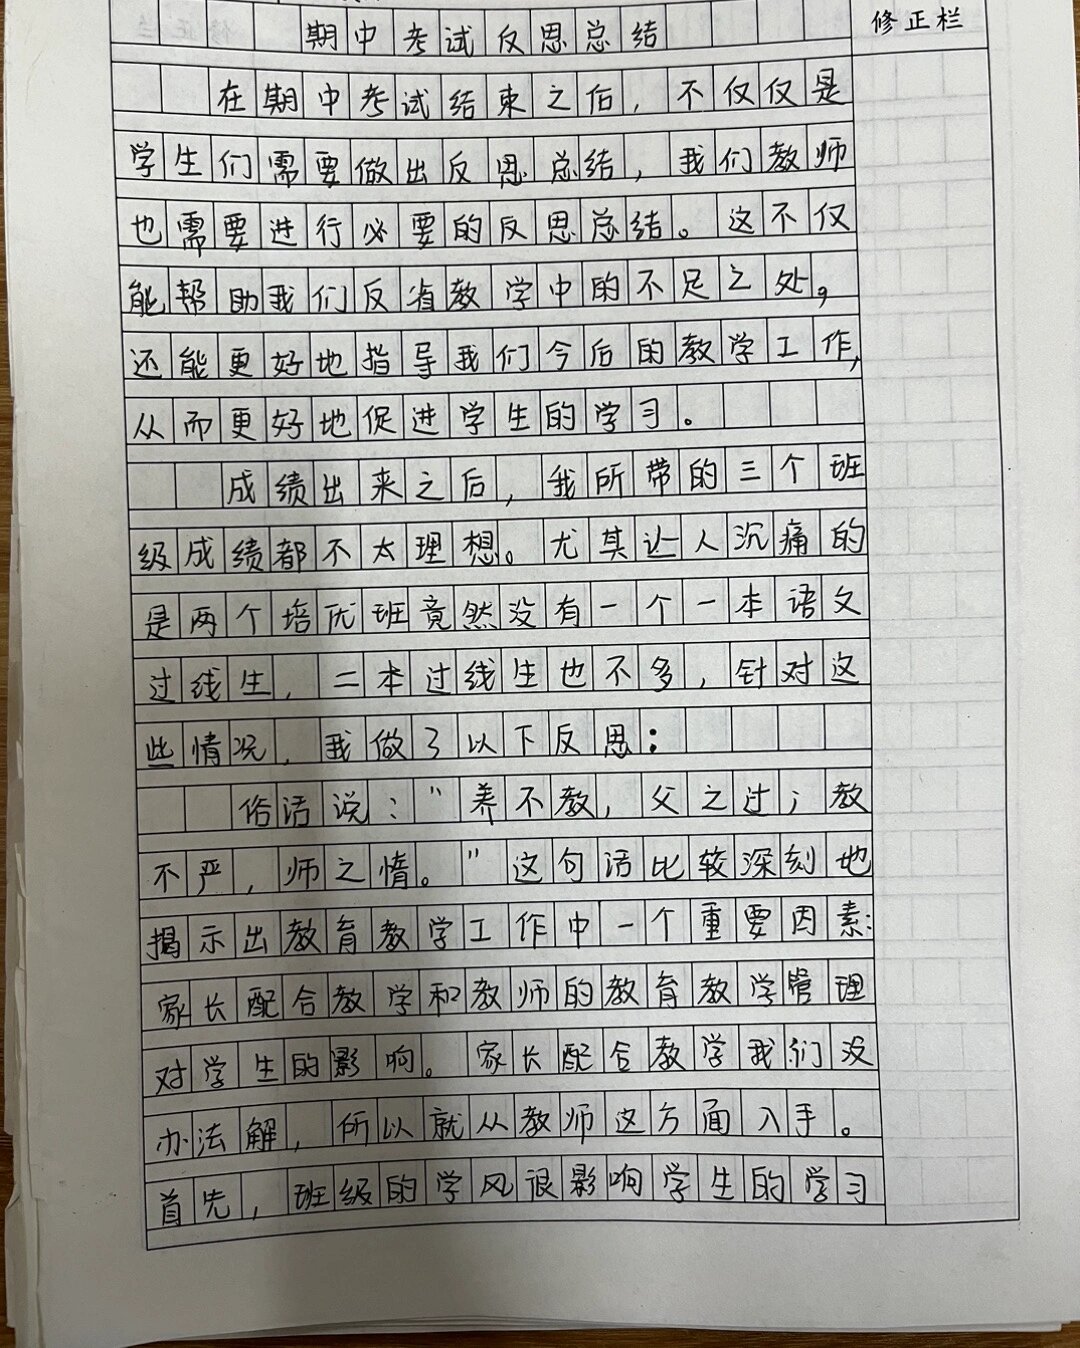 期中考试反思总结
修正栏
在期中考试结束之后，不仅仅是
学生们需要做出反思总结，我们教师
也需要进行必要的反思总结。这不仅
能帮助我们反省教学中的不足之处，
还能更好地指导我们今后的教学工作，
从而更好地促进学生的学习。
成绩出来之后，我所带的三个班
级成绩都不太理想。尤其让人沉痛的
是两个培优班竟然没有一个一本语文
过线生，二本过线生也不多，针对这
些情况，我做了以下反思：
俗话说：“养不教，父之过；教
不严，师之惰。”这句话比较深刻地
揭示出教育教学工作中一个重要因素：
家长配合教学和教师的教育教学管理
对学生的影响。家长配合教学我们没
办法解，所以就从教师这方面入手。
首先，班级的学风很影响学生的学习